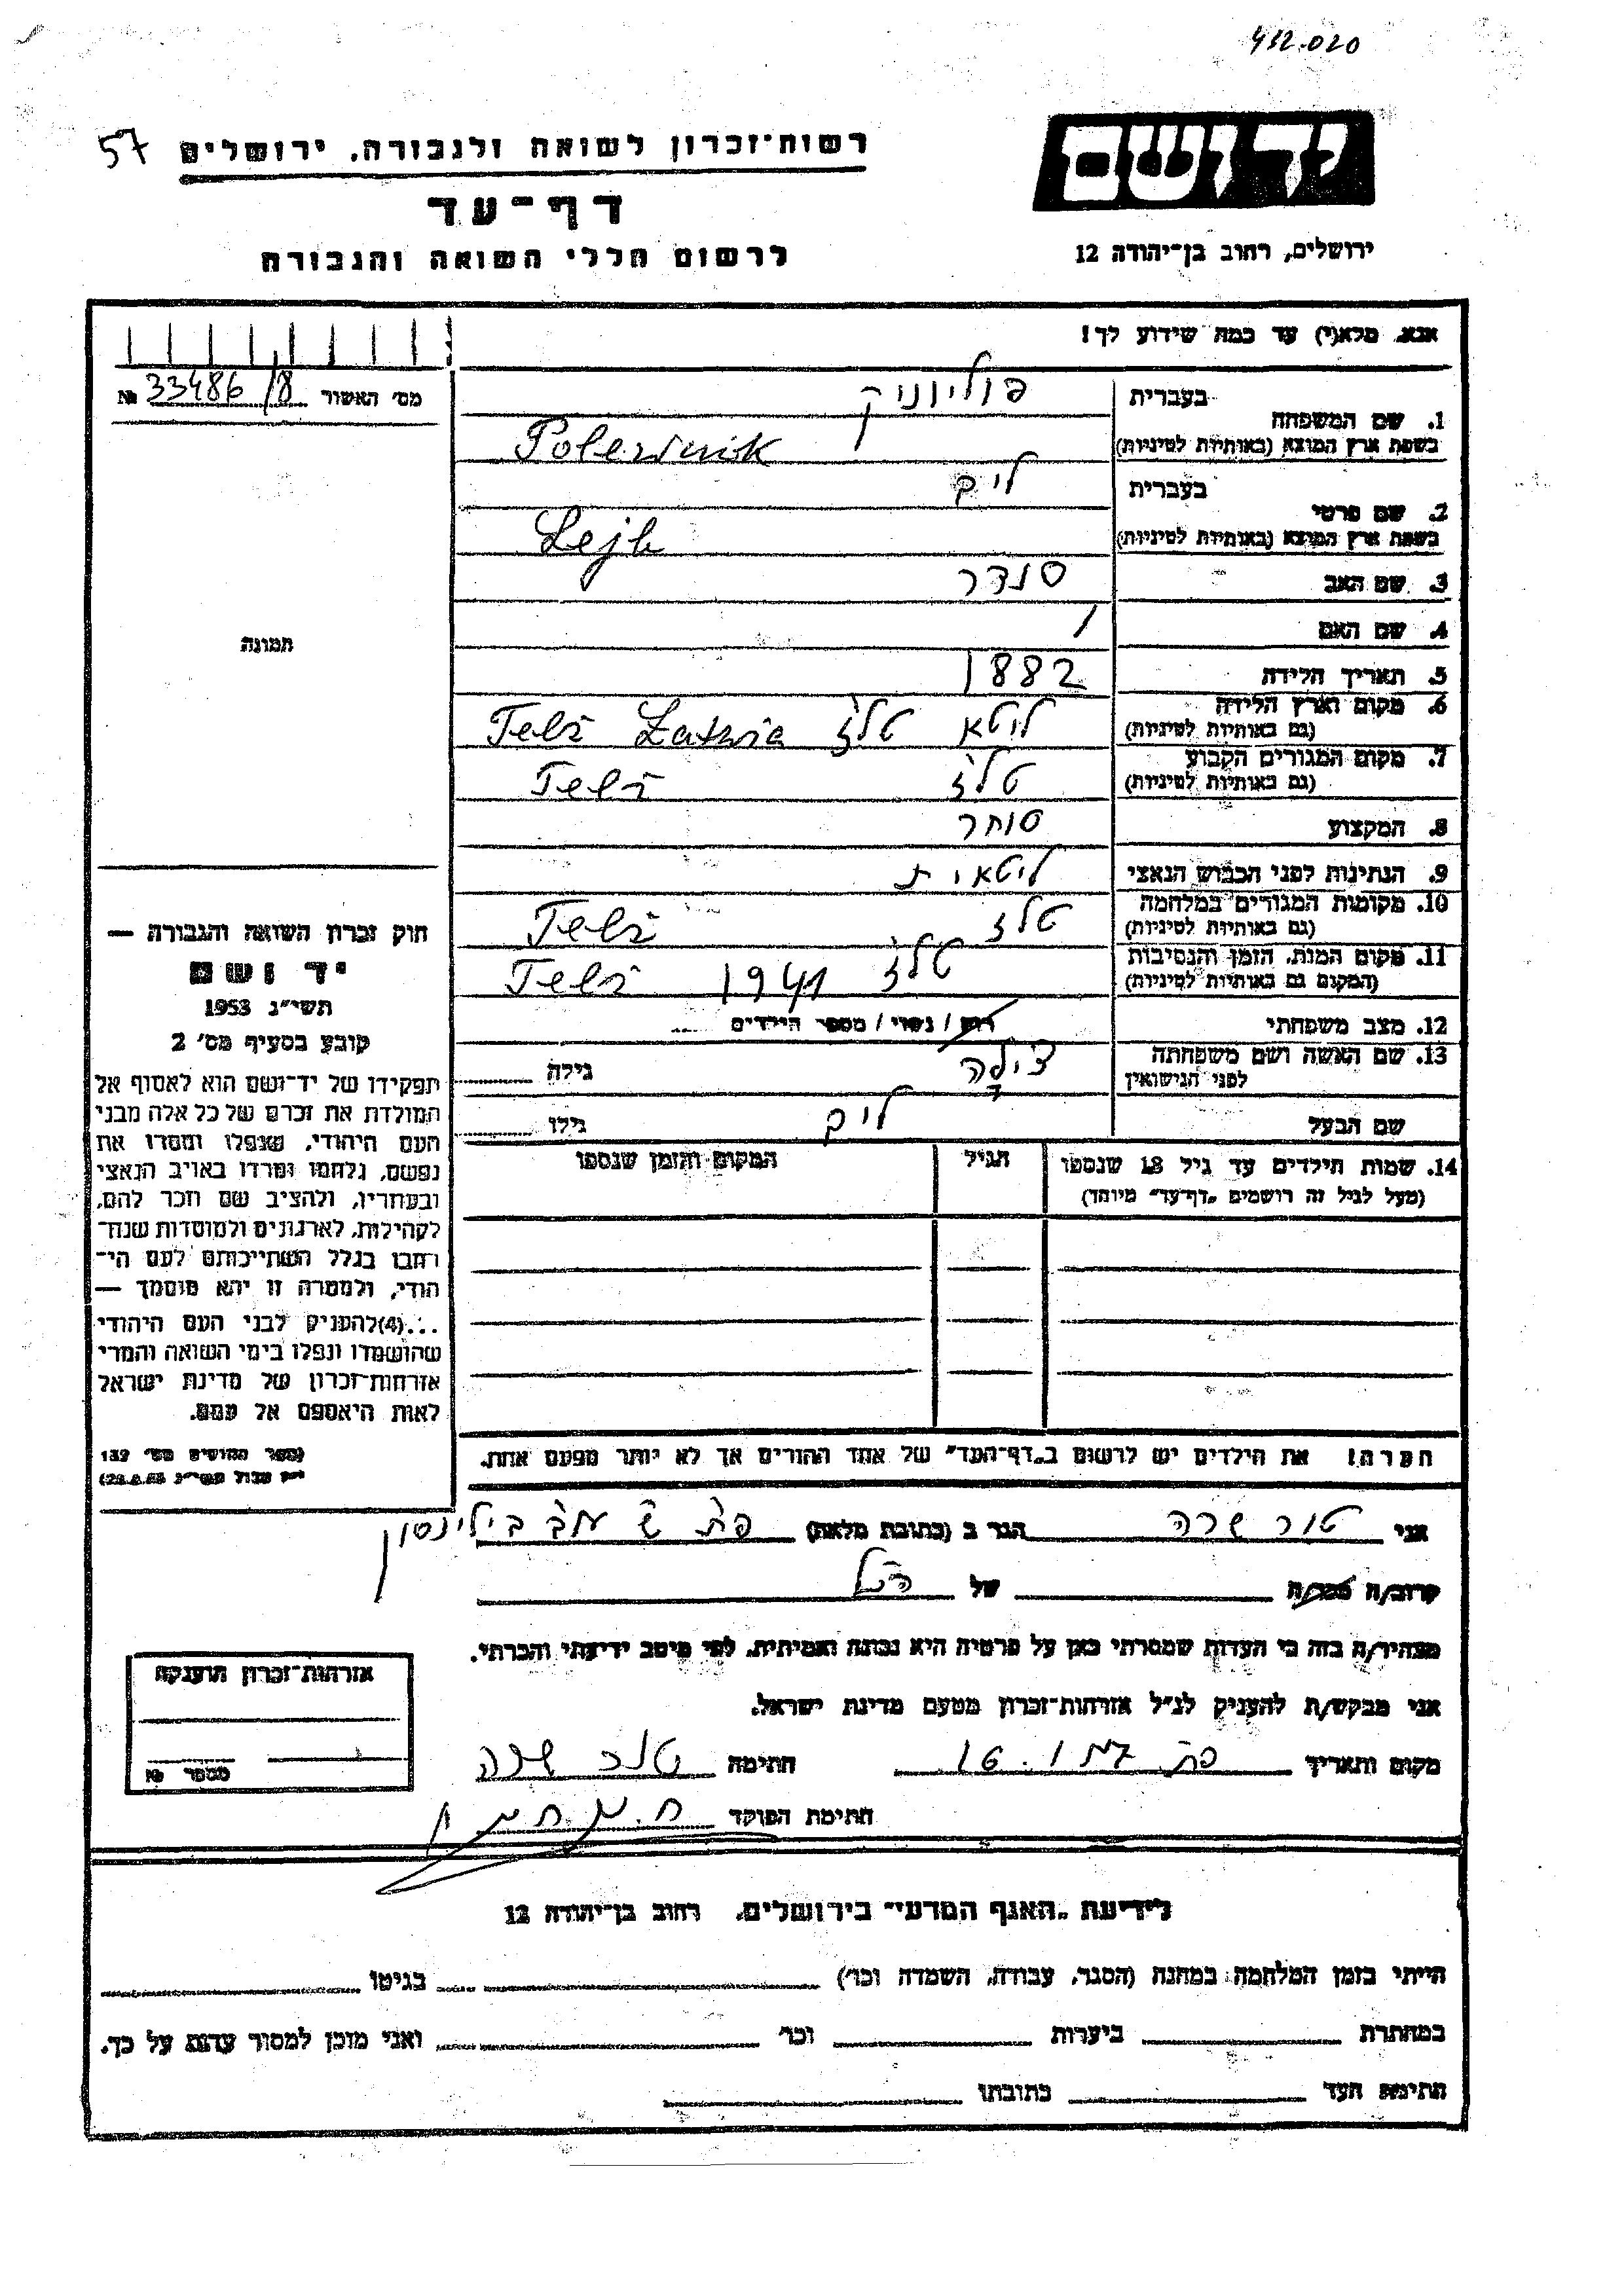 412.020
יד ושם
ירושלים, רחוב בן־יהודה 12
רשות־זכרון לשואה ולגבורה, ירושלים
57
דף־עד
לרשום חללי השואה והגבורה
אנא, מלא(י) עד כמה שידוע לך!
מס׳ האשור 33486/8 №
1. שם המשפחה
בעברית פוליווניק
בשפת ארץ המוצא (באותיות לטיניות) Polewnik
2. שם פרטי
בעברית ליב
בשפת ארץ המוצא (באותיות לטיניות) Lejb
3. שם האב סנדר
4. שם האם /
5. תאריך הלידה 1882
6. מקום וארץ הלידה
(גם באותיות לטיניות) ליטא טלז Telz Latwia
7. מקום המגורים הקבוע
(גם באותיות לטיניות) טלז Telz
8. המקצוע סוחר
9. הנתינות לפני הכבוש הנאצי ליטאית
10. מקומות המגורים במלחמה
(גם באותיות לטיניות) טלז Telz
11. מקום המות, הזמן והנסיבות
(המקום גם באותיות לטיניות) טלז 1941 Telz
12. מצב משפחתי רוק / נשוי / מספר הילדים
13. שם האשה ושם משפחתה
לפני הנישואין צילה גילה
שם הבעל ליב גילו
14. שמות הילדים עד גיל 18 שנספו
(מעל לגיל זה רושמים „דף־עד״ מיוחד)
הגיל
המקום והזמן שנספו
תמונה
חוק זכרון השואה והגבורה —
יד ושם
תשי״ג 1953
קובע בסעיף מס׳ 2
תפקידו של יד־ושם הוא לאסוף אל
המולדת את זכרם של כל אלה מבני
העם היהודי, שנפלו ומסרו את
נפשם, נלחמו ומרדו באויב הנאצי
ובעוזריו, ולהציב שם וזכר להם,
לקהילות, לארגונים ולמוסדות שנח־
רבו בגלל השתייכותם לעם הי־
הודי, ולמטרה זו יהא מוסמך —
...(4)להעניק לבני העם היהודי
שהושמדו ונפלו בימי השואה והמרי
אזרחות־זכרון של מדינת ישראל
לאות היאספם אל עמם.
(ספר החוקים מס׳ 132
י״ז אלול תשי״ג 28.8.53)
הערה! את הילדים יש לרשום ב„דף־העד״ של אחד ההורים אך לא יותר מפעם אחת.
אני טור שרה הגר ב (כתובת מלאה) פת בילינסון
קרוב/ה מכר/ה של הנ״ל
מצהיר/ה בזה כי העדות שמסרתי כאן על פרטיה היא נכונה ואמיתית, לפי מיטב ידיעתי והכרתי.
אני מבקש/ת להעניק לנ״ל אזרחות־זכרון מטעם מדינת ישראל.
מקום ותאריך פת חתימה טור שרה
חתימת הפוקד
אזרחות־זכרון הוענקה
מספר №
לידיעת „האגף המדעי״ בירושלים, רחוב בן־יהודה 12
הייתי בזמן המלחמה במחנה (הסגר, עבודה, השמדה וכו׳) בגיטו
במחתרת ביערות וכו׳ ואני מוכן למסור עדות על כך.
חתימת העד כתובתו